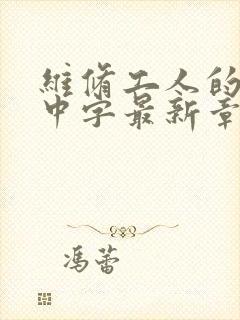 維脩工人的
中字最新章
馮蕾